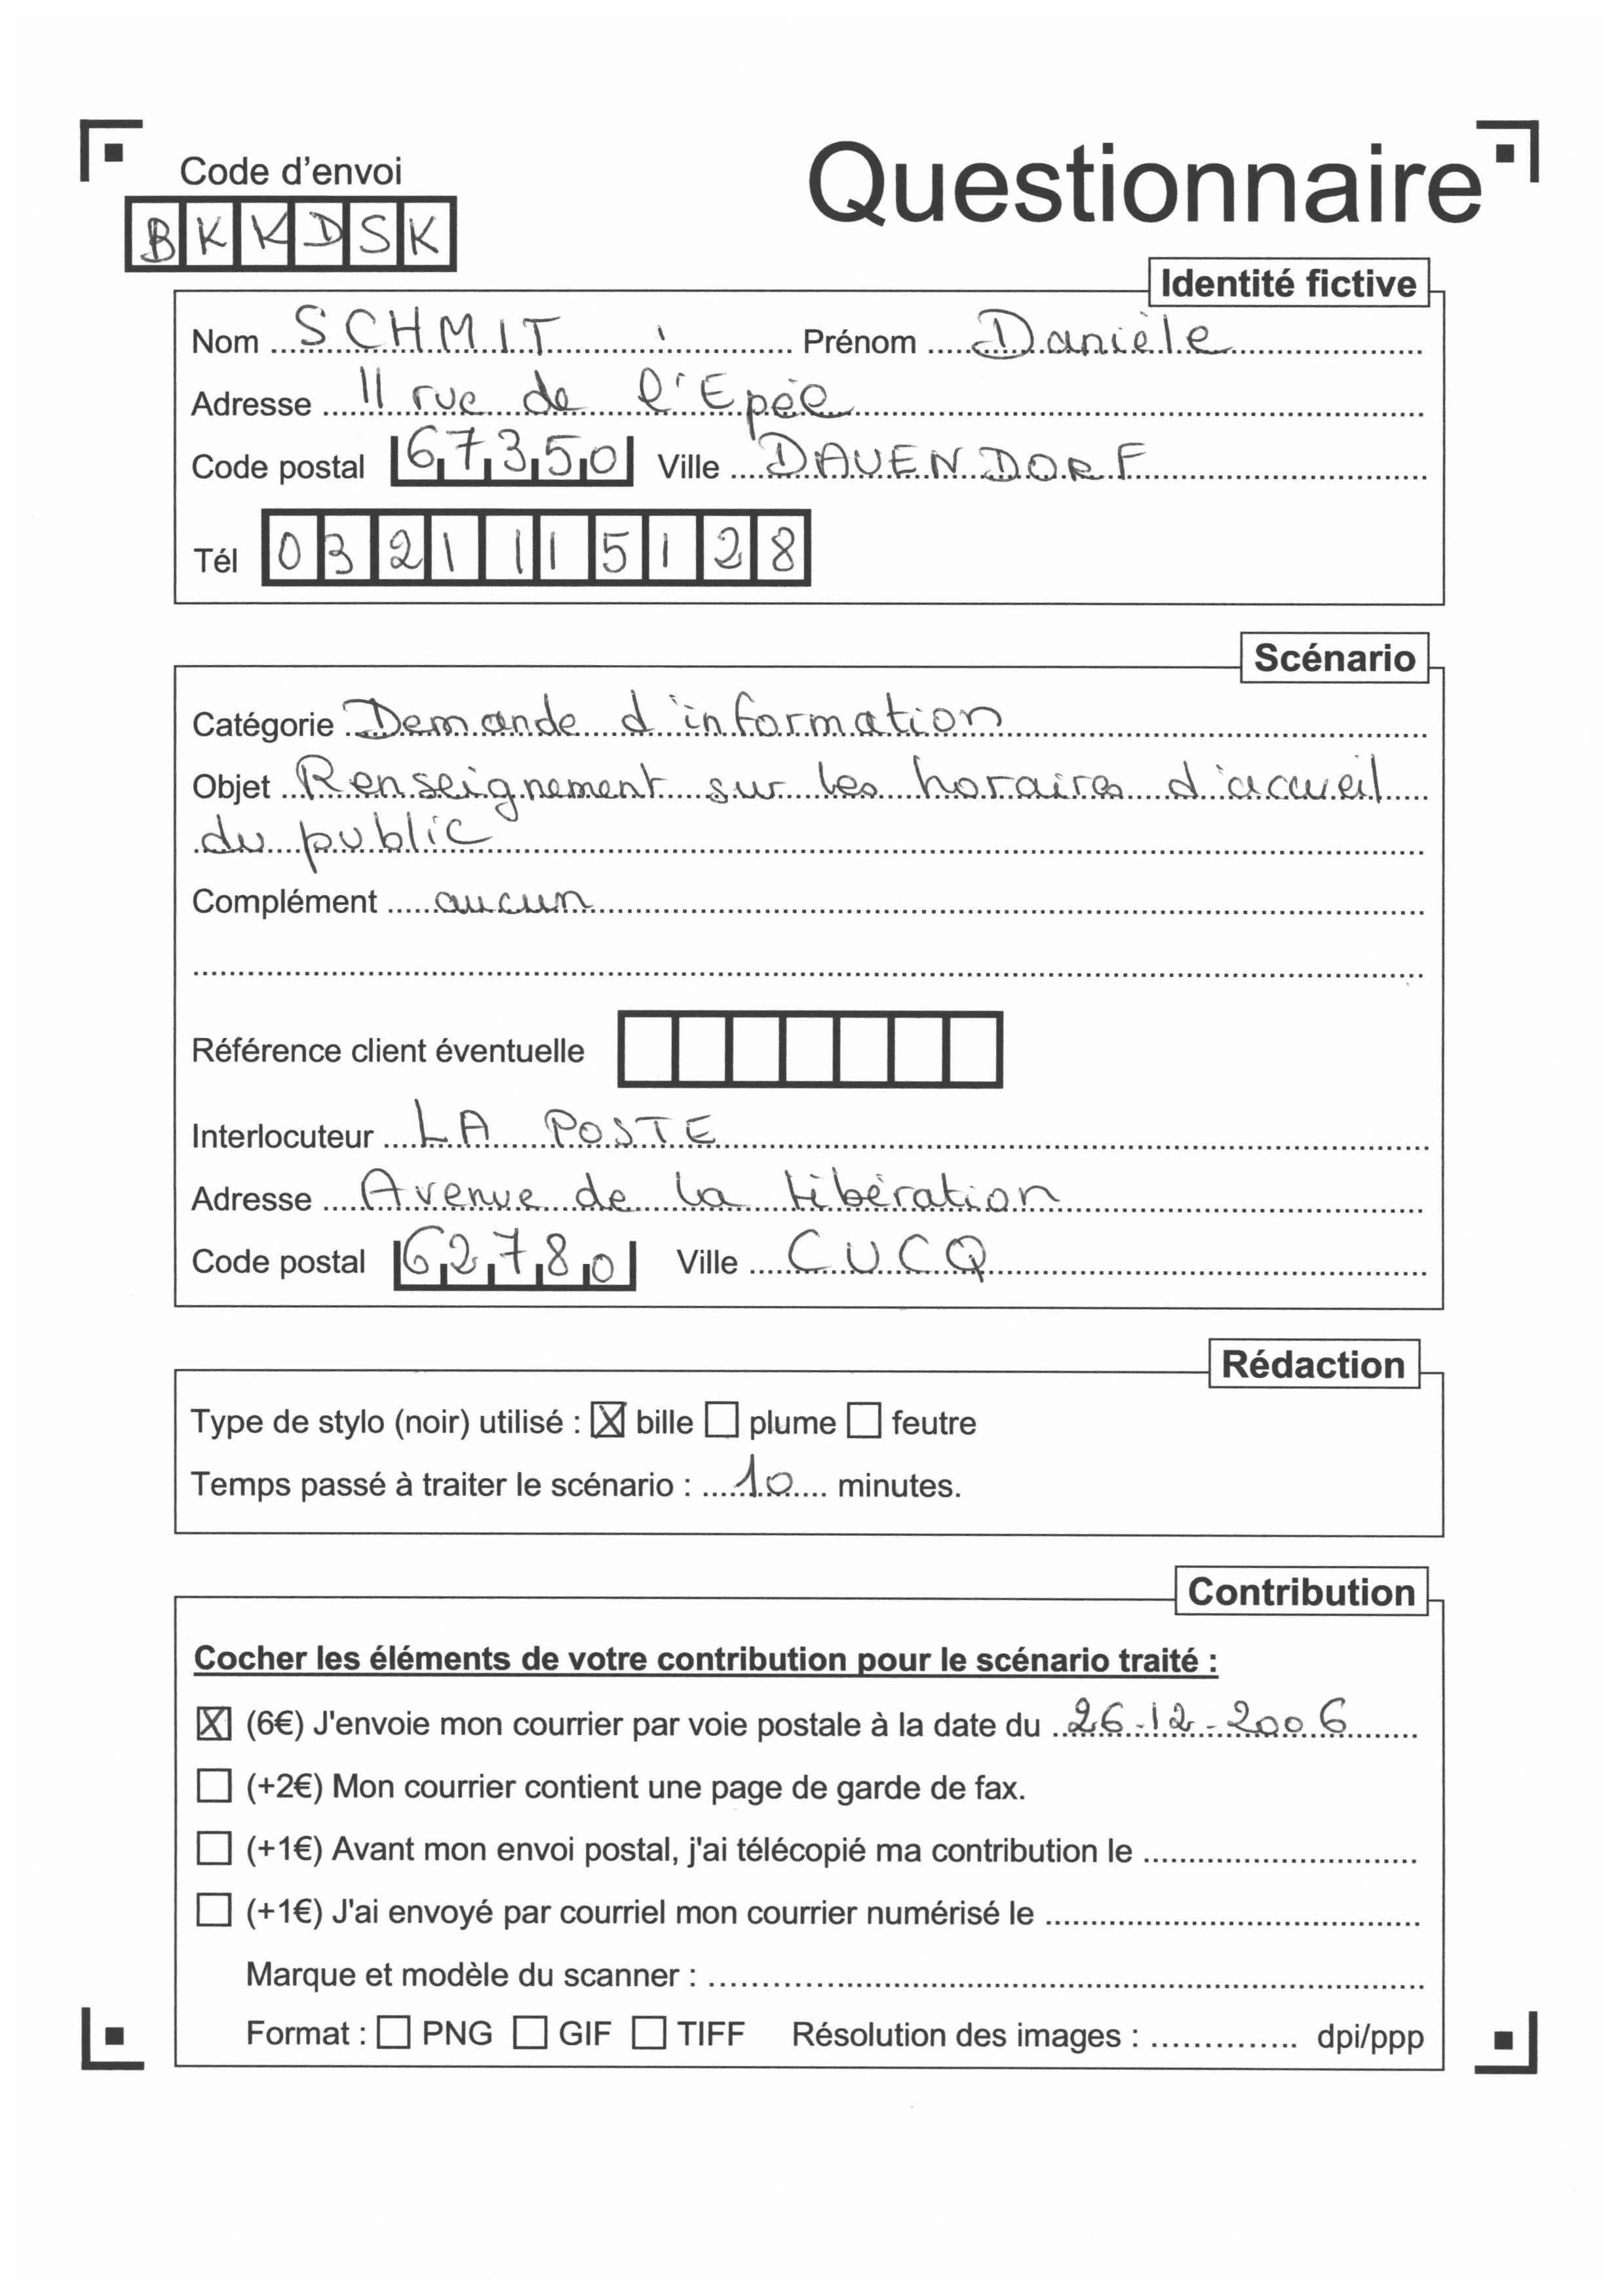 Questionnaire
Code d'envoi
BKKDSK
Identité fictive
Nom SCHMIT Prénom Danièle
Adresse 11 rue de l'Epée
Code postal 67350 Ville DAUENDORF
Tél 0321115128
Scénario
Catégorie Demande d'information
Objet Renseignement sur les horaires d'accueil
du public
Complément aucun
Référence client éventuelle
Interlocuteur LA POSTE
Adresse Avenue de la libération
Code postal 62780 Ville CUCQ
Rédaction
Type de stylo (noir) utilisé : ☒ bille ☐ plume ☐ feutre
Temps passé à traiter le scénario : 10 minutes.
Contribution
Cocher les éléments de votre contribution pour le scénario traité :
☒ (6€) J'envoie mon courrier par voie postale à la date du 26-12-2006
☐ (+2€) Mon courrier contient une page de garde de fax.
☐ (+1€) Avant mon envoi postal, j'ai télécopié ma contribution le
☐ (+1€) J'ai envoyé par courriel mon courrier numérisé le
Marque et modèle du scanner :
Format : ☐ PNG ☐ GIF ☐ TIFF Résolution des images : dpi/ppp